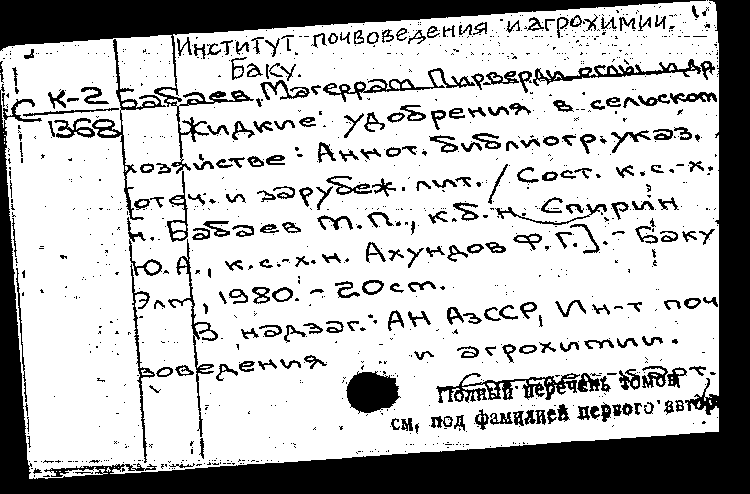 Институт почвоведения и агрохимии.
Баку.
С К-2 Бабаев, Магеррам Пирверди оглы и др.
1368 Жидкие удобрения в сельском
хозяйстве: Аннот. библиогр. указ.
[отеч. и зарубеж. лит. / Сост. к.с.-х.
н. Бабаев М.П., к.б.н. Спирин
Ю.А., к.с.-х.н. Ахундов Ф.Г.]. - Баку
Элм, 1980. - 20 см.
В надзаг.: АН АзССР, Ин-т поч
воведения и агрохимии.
Полный перечень томов
см. под фамилией первого автора